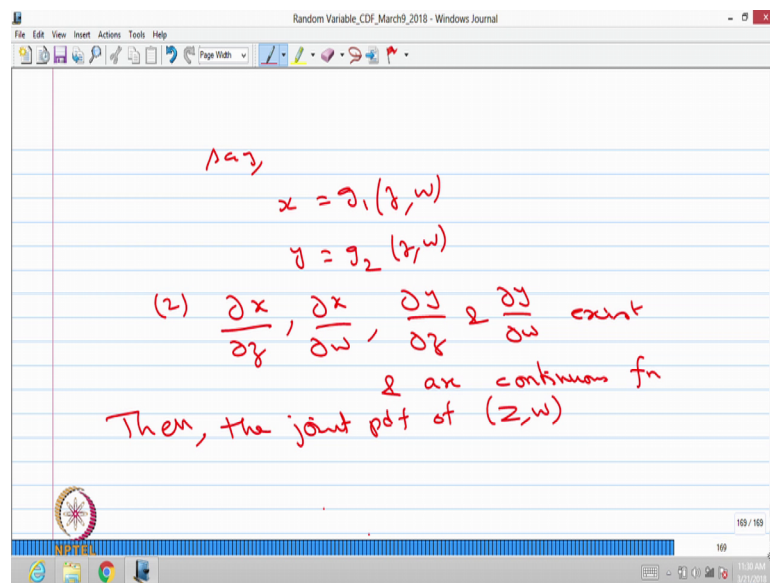 Random Variable_CDF_March9_2018 - Windows Journal
File Edit View Insert Actions Tools Help
Page Width
say,
x = g₁(z, w)
y = g₂(z, w)
(2) ∂x/∂z, ∂x/∂w, ∂y/∂z & ∂y/∂w exist
& are continuous fn
Then, the joint pdf of (Z, W)
NPTEL
169 / 169
169
11:30 AM
3/21/2018